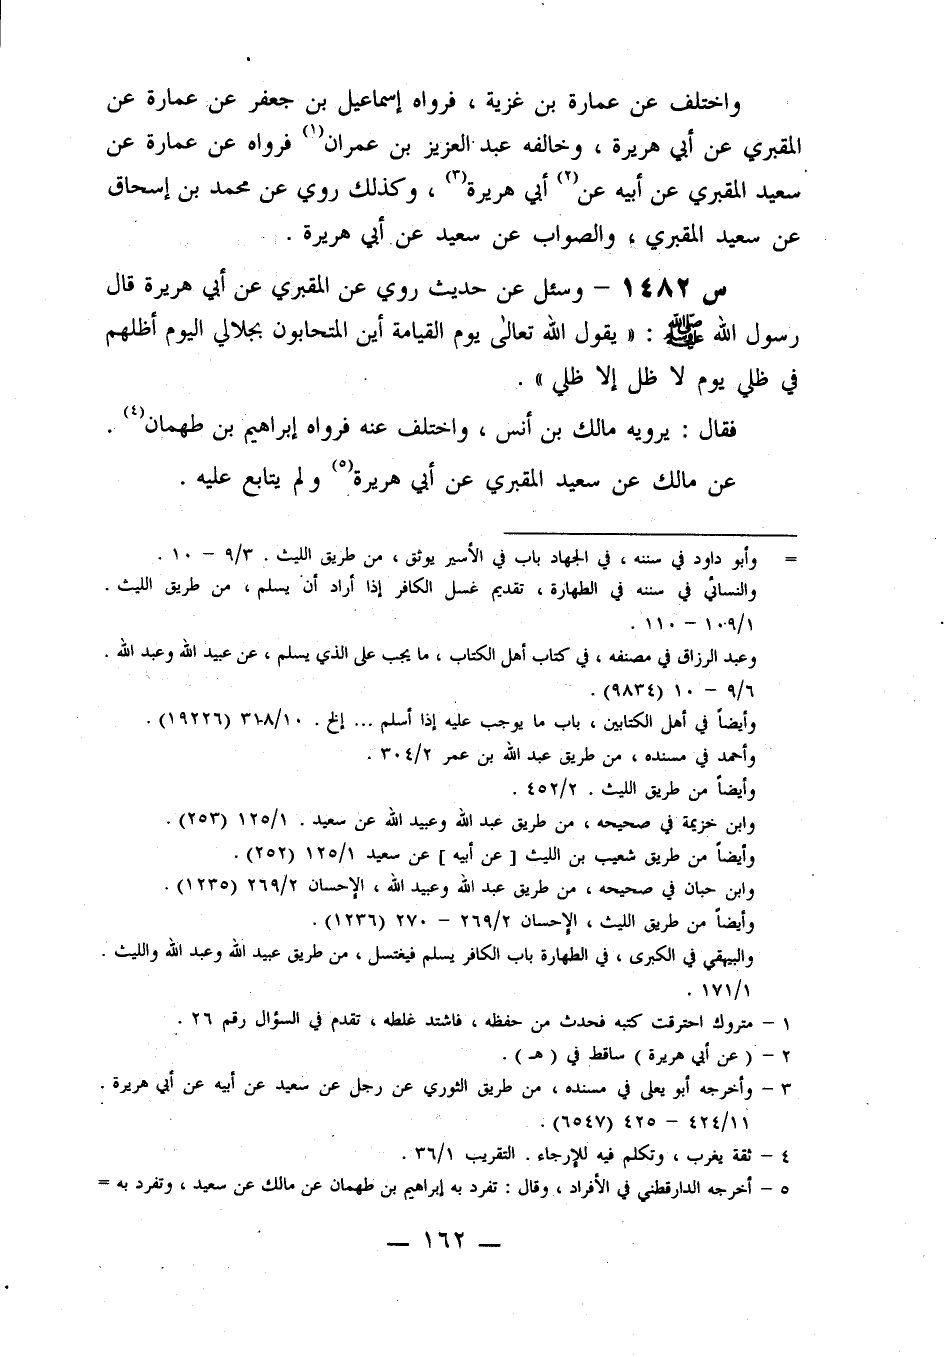 واختلف عن عمارة بن غزية ، فرواه إسماعيل بن جعفر عن عمارة عن
المقبري عن أبي هريرة ، وخالفه عبد العزيز بن عمران(١) فرواه عن عمارة عن
سعيد المقبري عن أبيه عن(٢) أبي هريرة(٣) ، وكذلك روي عن محمد بن إسحاق
عن سعيد المقبري ، والصواب عن سعيد عن أبي هريرة .
س ١٤٨٢ – وسئل عن حديث روي عن المقبري عن أبي هريرة قال
رسول الله ﷺ : « يقول الله تعالى يوم القيامة أين المتحابون بجلالي اليوم أظلهم
في ظلي يوم لا ظل إلا ظلي » .
فقال : يرويه مالك بن أنس ، واختلف عنه فرواه إبراهيم بن طهمان(٤) .
عن مالك عن سعيد المقبري عن أبي هريرة(٥) ولم يتابع عليه .
= وأبو داود في سننه ، في الجهاد باب في الأسير يوثق ، من طريق الليث . ٩/٣ – ١٠ .
والنسائي في سننه في الطهارة ، تقديم غسل الكافر إذا أراد أن يسلم ، من طريق الليث .
١٠٩/١ – ١١٠ .
وعبد الرزاق في مصنفه ، في كتاب أهل الكتاب ، ما يجب على الذي يسلم ، عن عبيد الله وعبد الله .
٩/٦ – ١٠ (٩٨٣٤) .
وأيضاً في أهل الكتابين ، باب ما يوجب عليه إذا أسلم ... إلخ . ٣١٨/١٠ (١٩٢٢٦) .
وأحمد في مسنده ، من طريق عبد الله بن عمر ٣٠٤/٢ .
وأيضاً من طريق الليث . ٤٥٢/٢ .
وابن خزيمة في صحيحه ، من طريق عبد الله وعبيد الله عن سعيد . ١٢٥/١ (٢٥٣) .
وأيضاً من طريق شعيب بن الليث [ عن أبيه ] عن سعيد ١٢٥/١ (٢٥٢) .
وابن حبان في صحيحه ، من طريق عبد الله وعبيد الله ، الإحسان ٢٦٩/٢ (١٢٣٥) .
وأيضاً من طريق الليث ، الإحسان ٢٦٩/٢ – ٢٧٠ (١٢٣٦) .
والبيهقي في الكبرى ، في الطهارة باب الكافر يسلم فيغتسل ، من طريق عبيد الله وعبد الله والليث .
١٧١/١ .
١ – متروك احترقت كتبه فحدث من حفظه ، فاشتد غلطه ، تقدم في السؤال رقم ٢٦ .
٢ – ( عن أبي هريرة ) ساقط في ( هـ ) .
٣ – وأخرجه أبو يعلى في مسنده ، من طريق الثوري عن رجل عن سعيد عن أبيه عن أبي هريرة .
٤٢٤/١١ – ٤٢٥ (٦٥٤٧) .
٤ – ثقة يغرب ، وتكلم فيه للإرجاء . التقريب ٣٦/١ .
٥ – أخرجه الدارقطني في الأفراد ، وقال : تفرد به إبراهيم بن طهمان عن مالك عن سعيد ، وتفرد به =
— ١٦٢ —